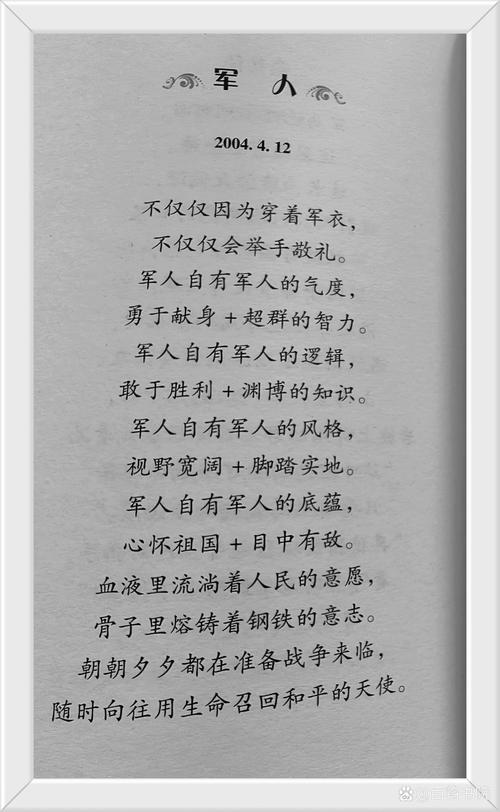 军 人
2004.4.12
不仅仅因为穿着军衣，
不仅仅会举手敬礼。
军人自有军人的气度，
勇于献身＋超群的智力。
军人自有军人的逻辑，
敢于胜利＋渊博的知识。
军人自有军人的风格，
视野宽阔＋脚踏实地。
军人自有军人的底蕴，
心怀祖国＋目中有敌。
血液里流淌着人民的意愿，
骨子里熔铸着钢铁的意志。
朝朝夕夕都在准备战争来临，
随时向往用生命召回和平的天使。